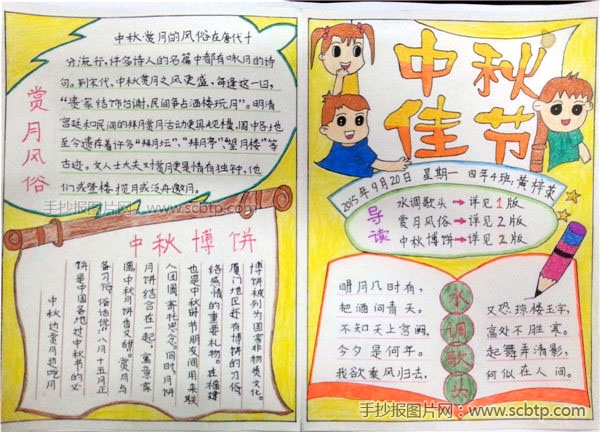 中秋赏月的风俗在唐代十
分流行,许多诗人的名篇中都有咏月的诗
句。到宋代,中秋赏月之风更盛,每逢这一日,
"贵家结饰台谢,民间争占酒楼玩月"。明清
宫廷和民间的拜月赏月活动更具规模,
至今遗存着许多"拜月坛"、"拜月亭""望月楼"等
古迹,文人士大夫对赏月更是情有独钟,他
们或登楼,揽月或泛舟邀月.
赏月风俗
手抄报图片网:www.scbtp.com
中秋博饼
中秋边赏月边吃月
饼是中国各地过中秋节的必
备习俗,俗话说:八月十五月正
圆,中秋月饼香又甜。赏月与
月饼结合在一起,寓意家
人团圆寄托思念。同时,月饼
也是中秋时节朋友间用来联
络感情的重要礼物。在福建
厦门地区还有博饼的习俗
博饼被列为国家非物质文化。
中秋
佳节
2015年9月20日 星期一 四年4班:黄梓荣
导读
水调歌头→详见1版
赏月风俗→详见2版
中秋博饼→详见2版
水调歌头
明月几时有,
把酒问青天。
不知天上宫阙,
今夕是何年。
我欲乘风归去,
又恐琼楼玉宇,
高处不胜寒。
起舞弄清影,
何似在人间。
手抄报图片网:www.scbtp.com